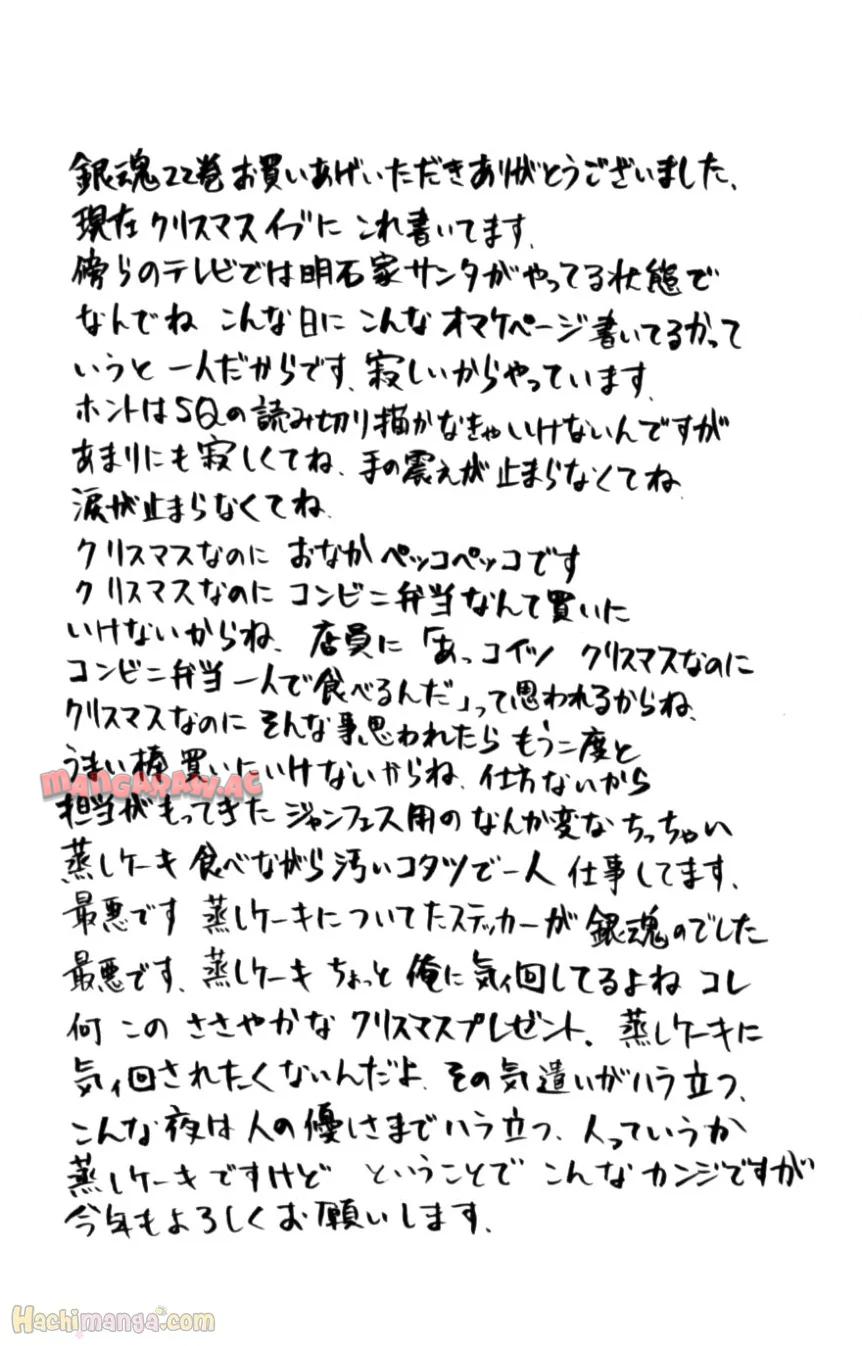 銀魂22巻お買いあげいただきありがとうございました、
現在クリスマスイブに これ書いてます、
傍らのテレビでは明石家サンタがやってる状態で
なんでね こんな日に こんな オマケページ書いてるかって
いうと 一人だからです、寂しいからやっています、
ホントはSQの読み切り描かなきゃいけないんですが
あまりにも寂しくてね、手の震えが止まらなくてね、
涙が止まらなくてね、
クリスマスなのに おなかペッコペッコです
クリスマスなのに コンビニ弁当なんて買いに
いけないからね、店員に「あっコイツ クリスマスなのに
コンビニ弁当一人で食べるんだ」って思われるからね、
クリスマスなのに そんな事思われたら もう二度と
うまい棒買いにいけないからね、仕方ないから
担当がもってきた ジャンフェス用のなんか変なちっちゃい
蒸しケーキ食べながら汚いコタツで一人 仕事してます、
最悪です 蒸しケーキについてたステッカーが銀魂のでした
最悪です、蒸しケーキ ちょっと俺に気ィ回してるよね コレ
何 この ささやかな クリスマスプレゼント、蒸しケーキに
気ィ回されたくないんだよ、その気遣いがハラ立つ、
こんな夜は 人の優しさまでハラ立つ、人っていうか
蒸しケーキですけど ということで こんなカンジですが
今年もよろしくお願いします、
MANGARAW.AC
Hachimanga.com